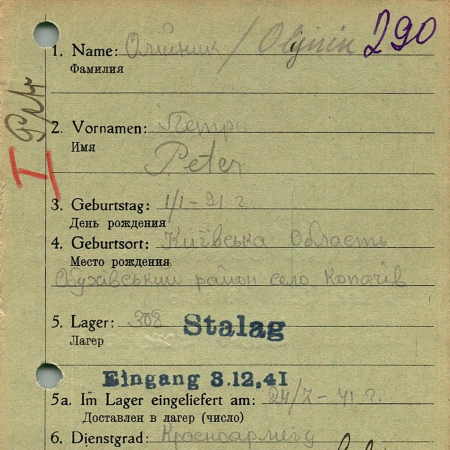 290
1. Name: Олійник / Olynik
Фамилия
2. Vornamen: Петро
Имя
Peter
3. Geburtstag: 1/I - 21 г
День рождения
4. Geburtsort: Київська Область
Место рождения
Обухівський район село Копачів
5. Lager: 308 Stalag
Лагер
Eingang 3.12.41
5a. Im Lager eingeliefert am: 24/7 - 41 г.
Доставлен в лагер (число)
6. Dienstgrad: Красноармеец